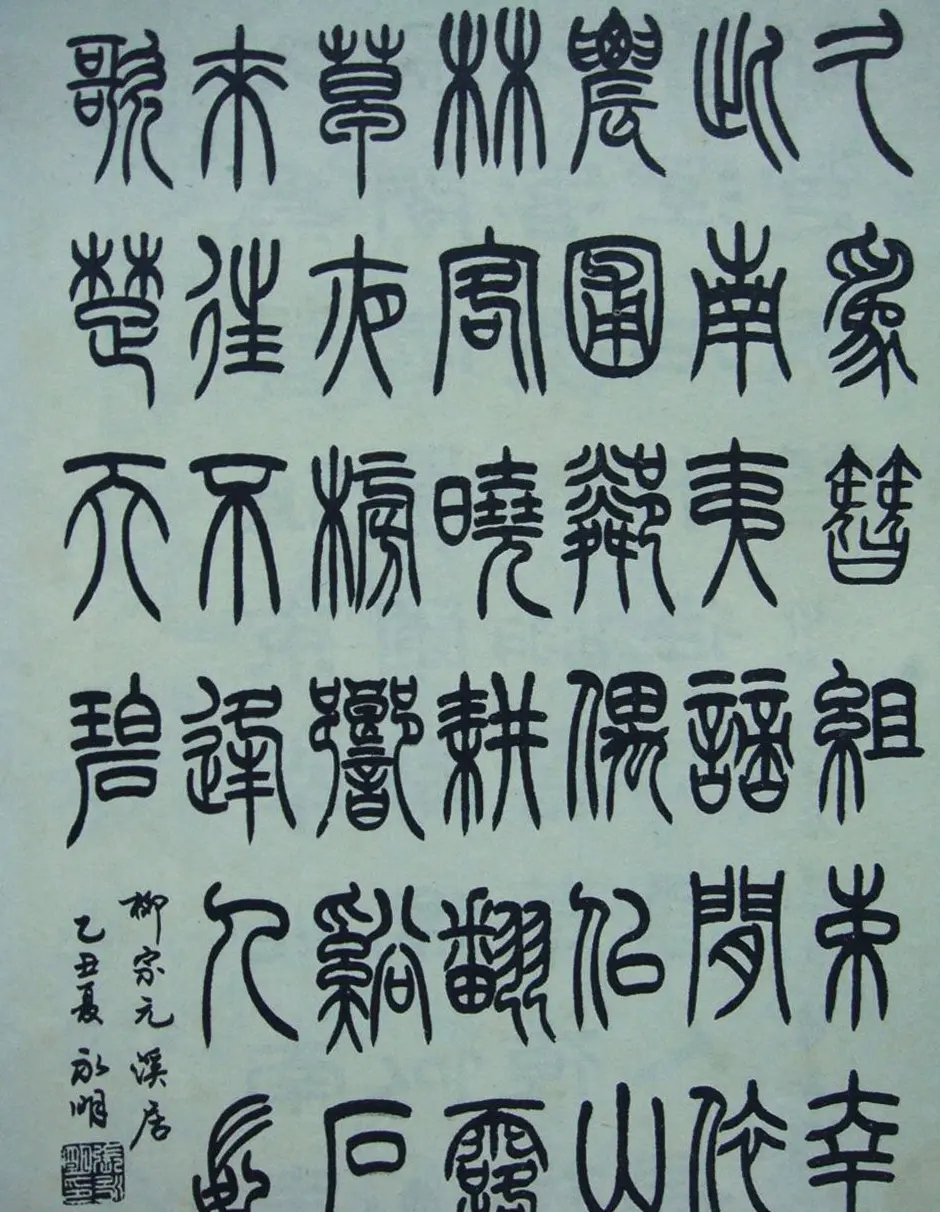 久為簪組束幸
此南夷謫閒依
農圃鄰偶似山
林客曉耕翻露
草夜榜響谿石
來往不逢人長
歌楚天碧
柳宗元溪居
乙丑夏永明